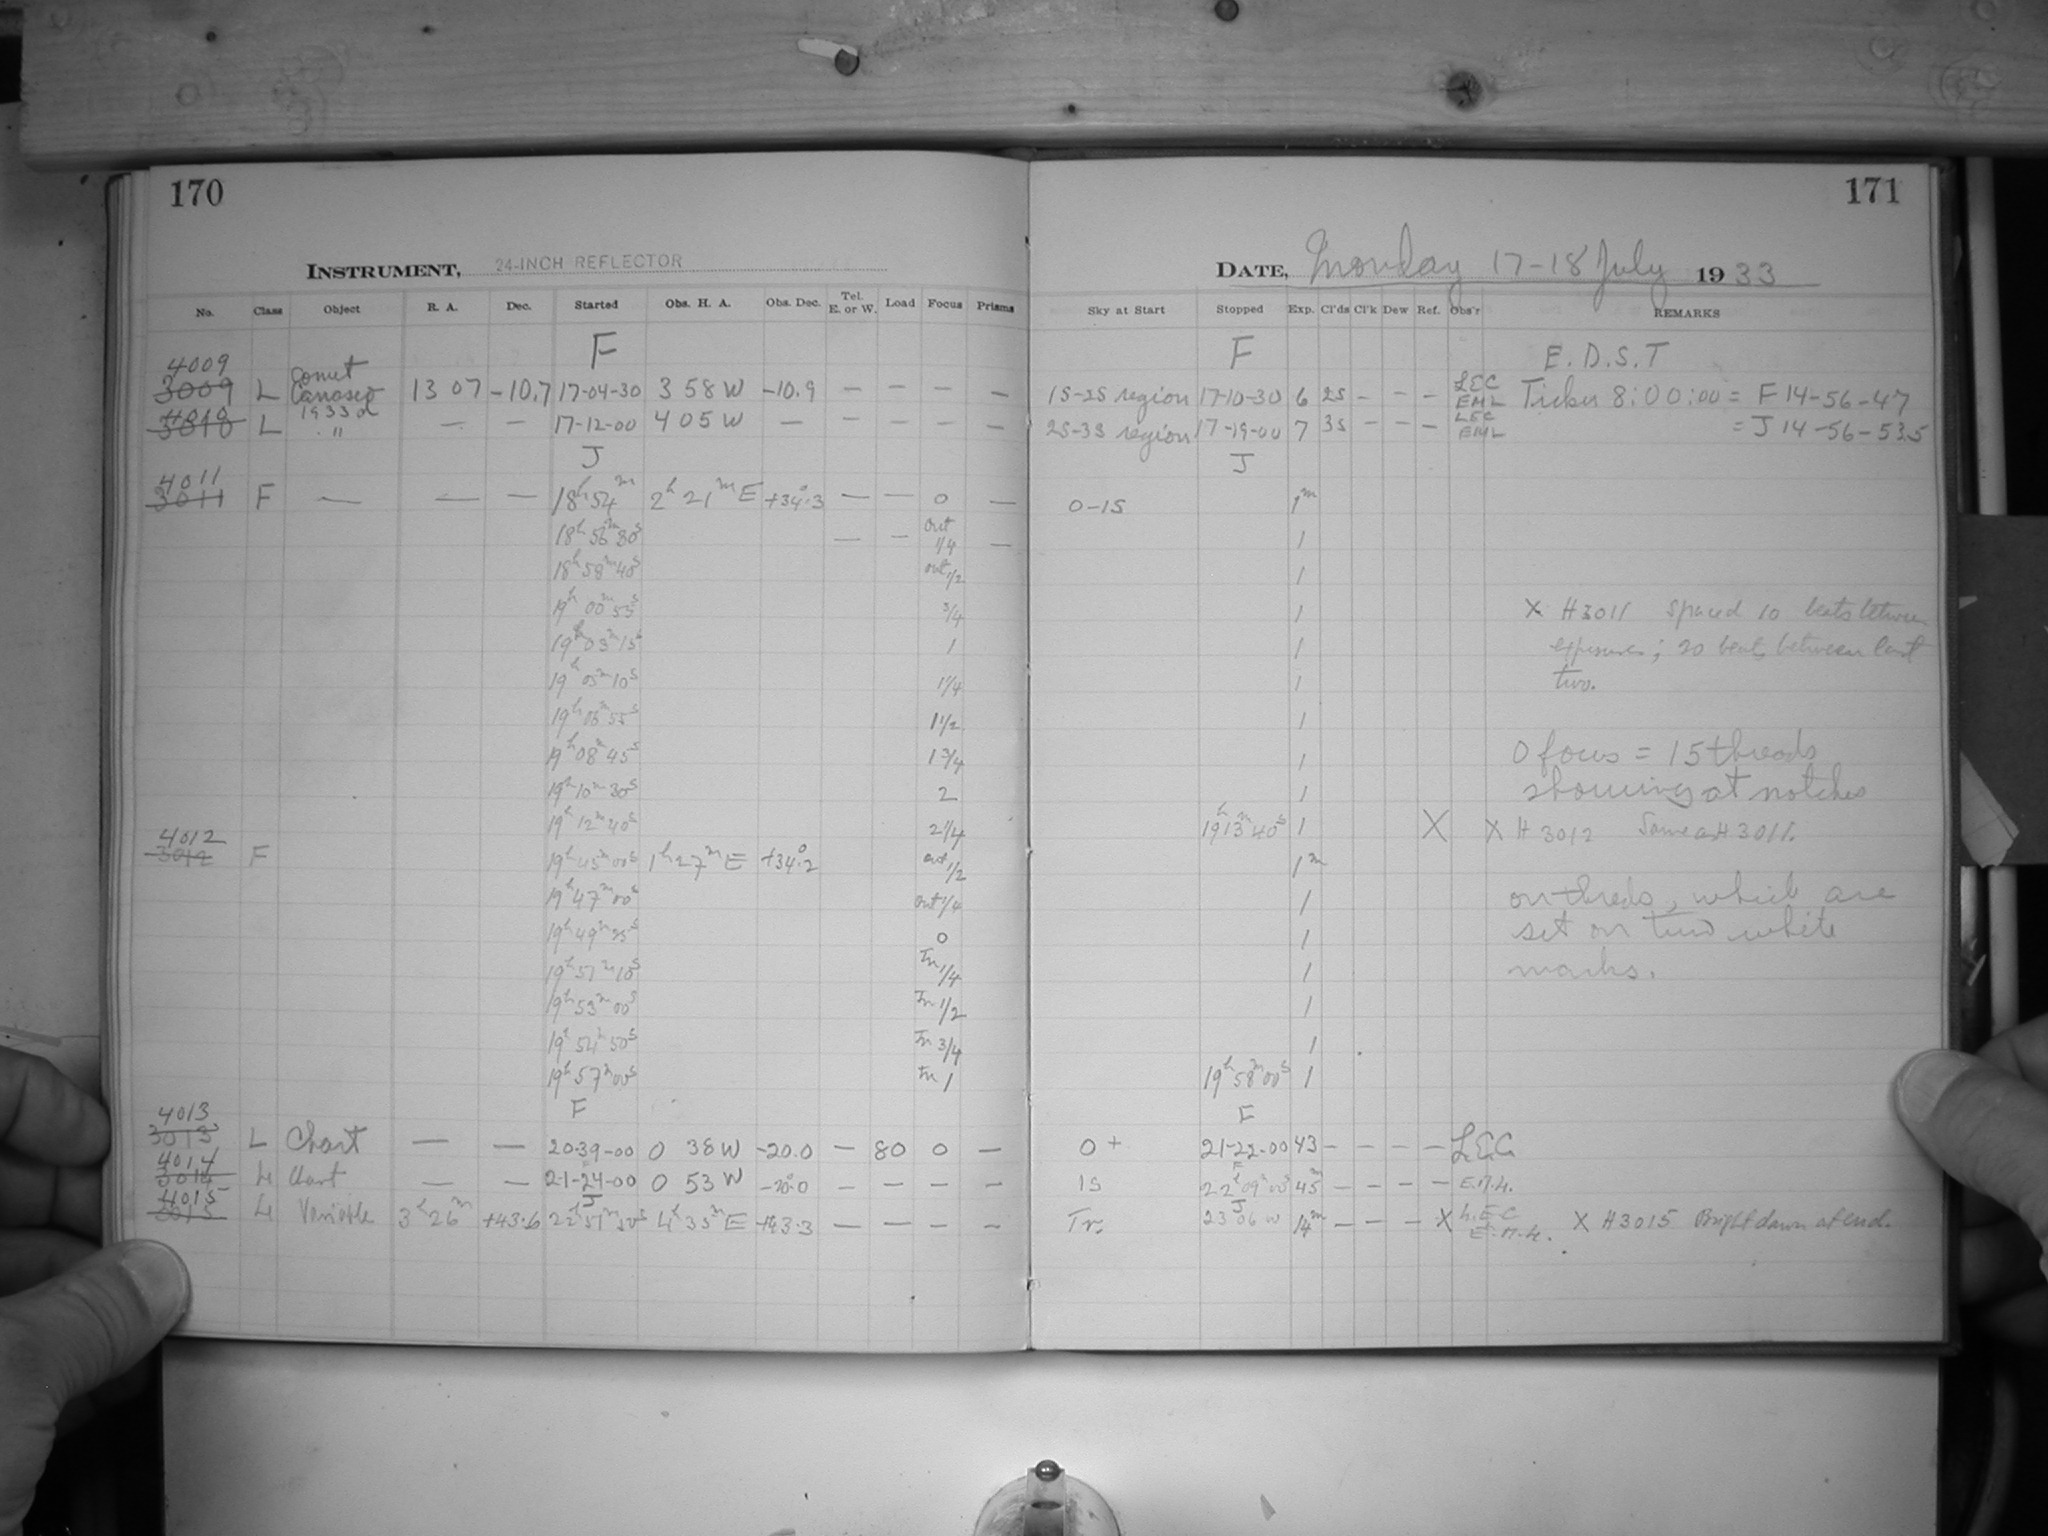 170
INSTRUMENT, 24-INCH REFLECTOR
No. Class Object R. A. Dec. Started Obs. H. A. Obs. Dec. Tel. E. or W. Load Focus Prisms
F
4009
3009 L Comet 13 07 -10.7 17-04-30 3 58 W -10.9 — — — —
1933 d
L " — — 17-12-00 4 05 W — — — — —
J
4011
3011 F — — — 18h 54m 2h 21m E +34°.3 — — 0 —
18h 56m 30s — — out 1/4 —
18h 58m 40s out 1/2
19h 00m 55s 3/4
19h 03m 15s 1
19h 05m 10s 1 1/4
19h 06m 55s 1 1/2
19h 08m 45s 1 3/4
19h 10m 30s 2
19h 12m 40s 2 1/4
4012
3012 F 19h 45m 00s 1h 27m E +34°.2 out 1/2
19h 47m 00s out 1/4
19h 49m 25s 0
19h 51m 10s In 1/4
19h 53m 00s In 1/2
19h 54m 50s In 3/4
19h 57m 00s In 1
F
4013
3013 L Chart — — 20-39-00 0 38 W -20.0 — 80 0 —
4014
3014 L Chart — — 21-24-00 0 53 W -20°.0 — — — —
J
4015
3015 L Variable 3h 26m +43.6 22h 51m 50s 4h 35m E +43.3 — — — —
171
DATE, Monday 17-18 July 1933
Sky at Start Stopped Exp. Cl'ds Cl'k Dew Ref. Obs'r REMARKS
F E. D. S. T
1S-2S region 17-10-30 6 2S - - - LEC EML Ticker 8:00:00 = F 14-56-47
2S-3S region 17-19-00 7 3S - - - LEC EML = J 14-56-53.5
J
0-1S 1m
1
1
1 X H3011 spaced 10 beats between
1 exposures; 20 beats between last
1 two.
1
1 0 focus = 15 threads
1 showing at notches
19h 13m 40s 1 X X H 3012 Same as H 3011.
1m
1 on threds, which are
1 set on two white
1 marks.
1
1
19h 58m 00s 1
F
0+ 21-22-00 43 - - - - L.E.C
F
1S 22h 09m 00s 45m - - - - E.M.L.
J
Tr. 23 06 14m - - - X L.E.C E.M.L. X H3015 Bright dawn at end.